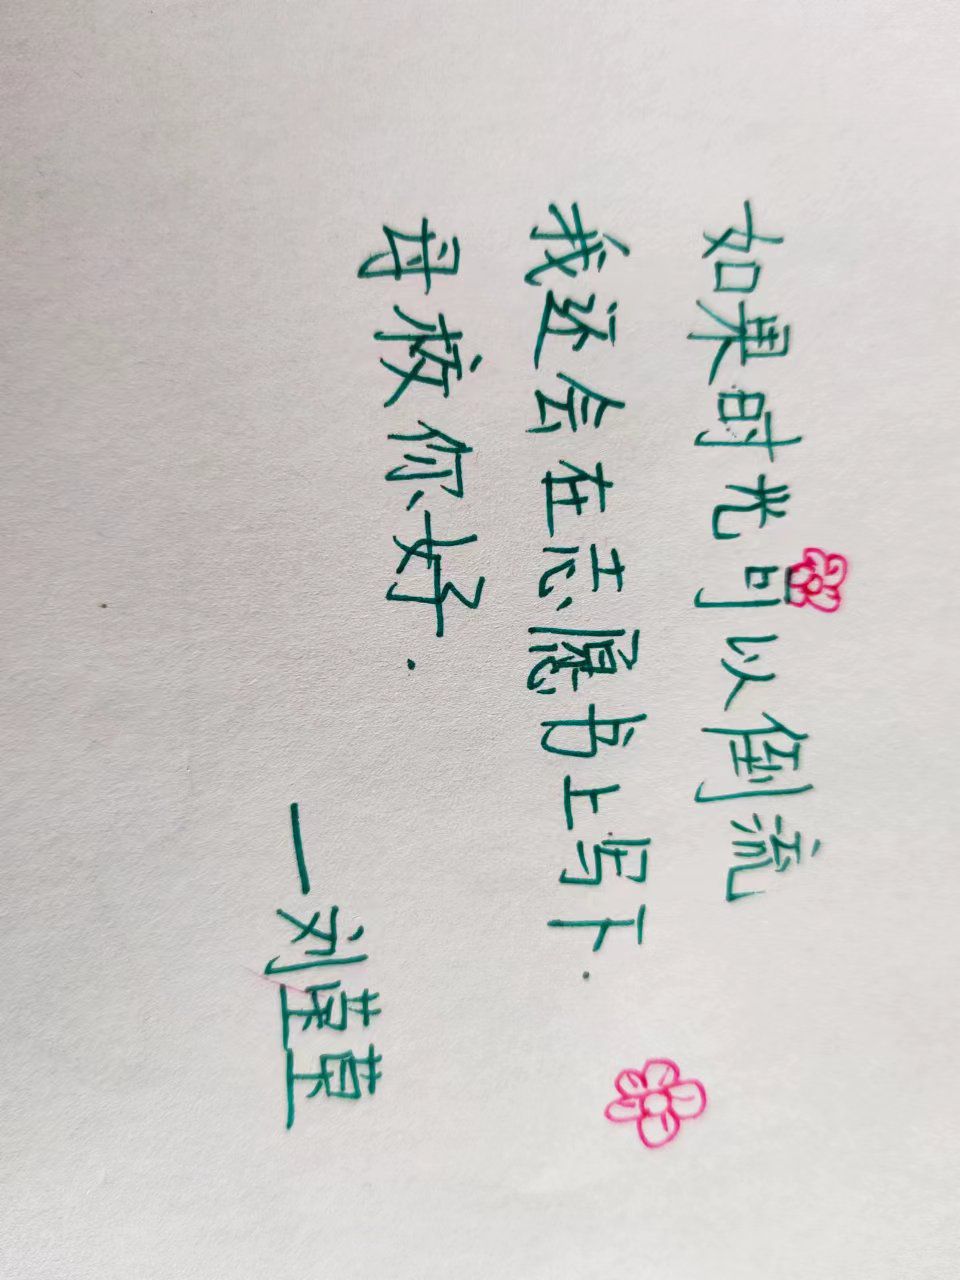 如果时光可以倒流
我还会在志愿书上写下.
母校你好.
—刘莹莹